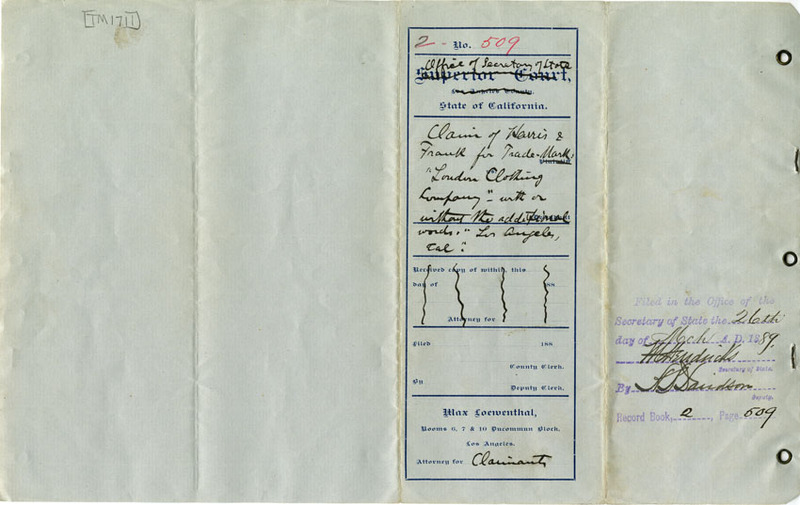 [TM1711]
2 - No. 509
Office of Secretary of State
Superior Court,
State of California.
Claim of Harris &
Frank for Trade-Mark,
"London Clothing
Company" - with or
without the additional
words: "Los Angeles,
Cal".
Received copy of within, this
day of 188
Attorney for
Filed 188
County Clerk.
By
Deputy Clerk.
Max Loewenthal,
Rooms 6, 7 & 10 Ducommun Block,
Los Angeles.
Attorney for Claimants
Filed in the Office of the
Secretary of State the 26th
day of Mch A. D. 1889.
W C Hendricks
Secretary of State.
By
Deputy.
Record Book, 2, Page 509